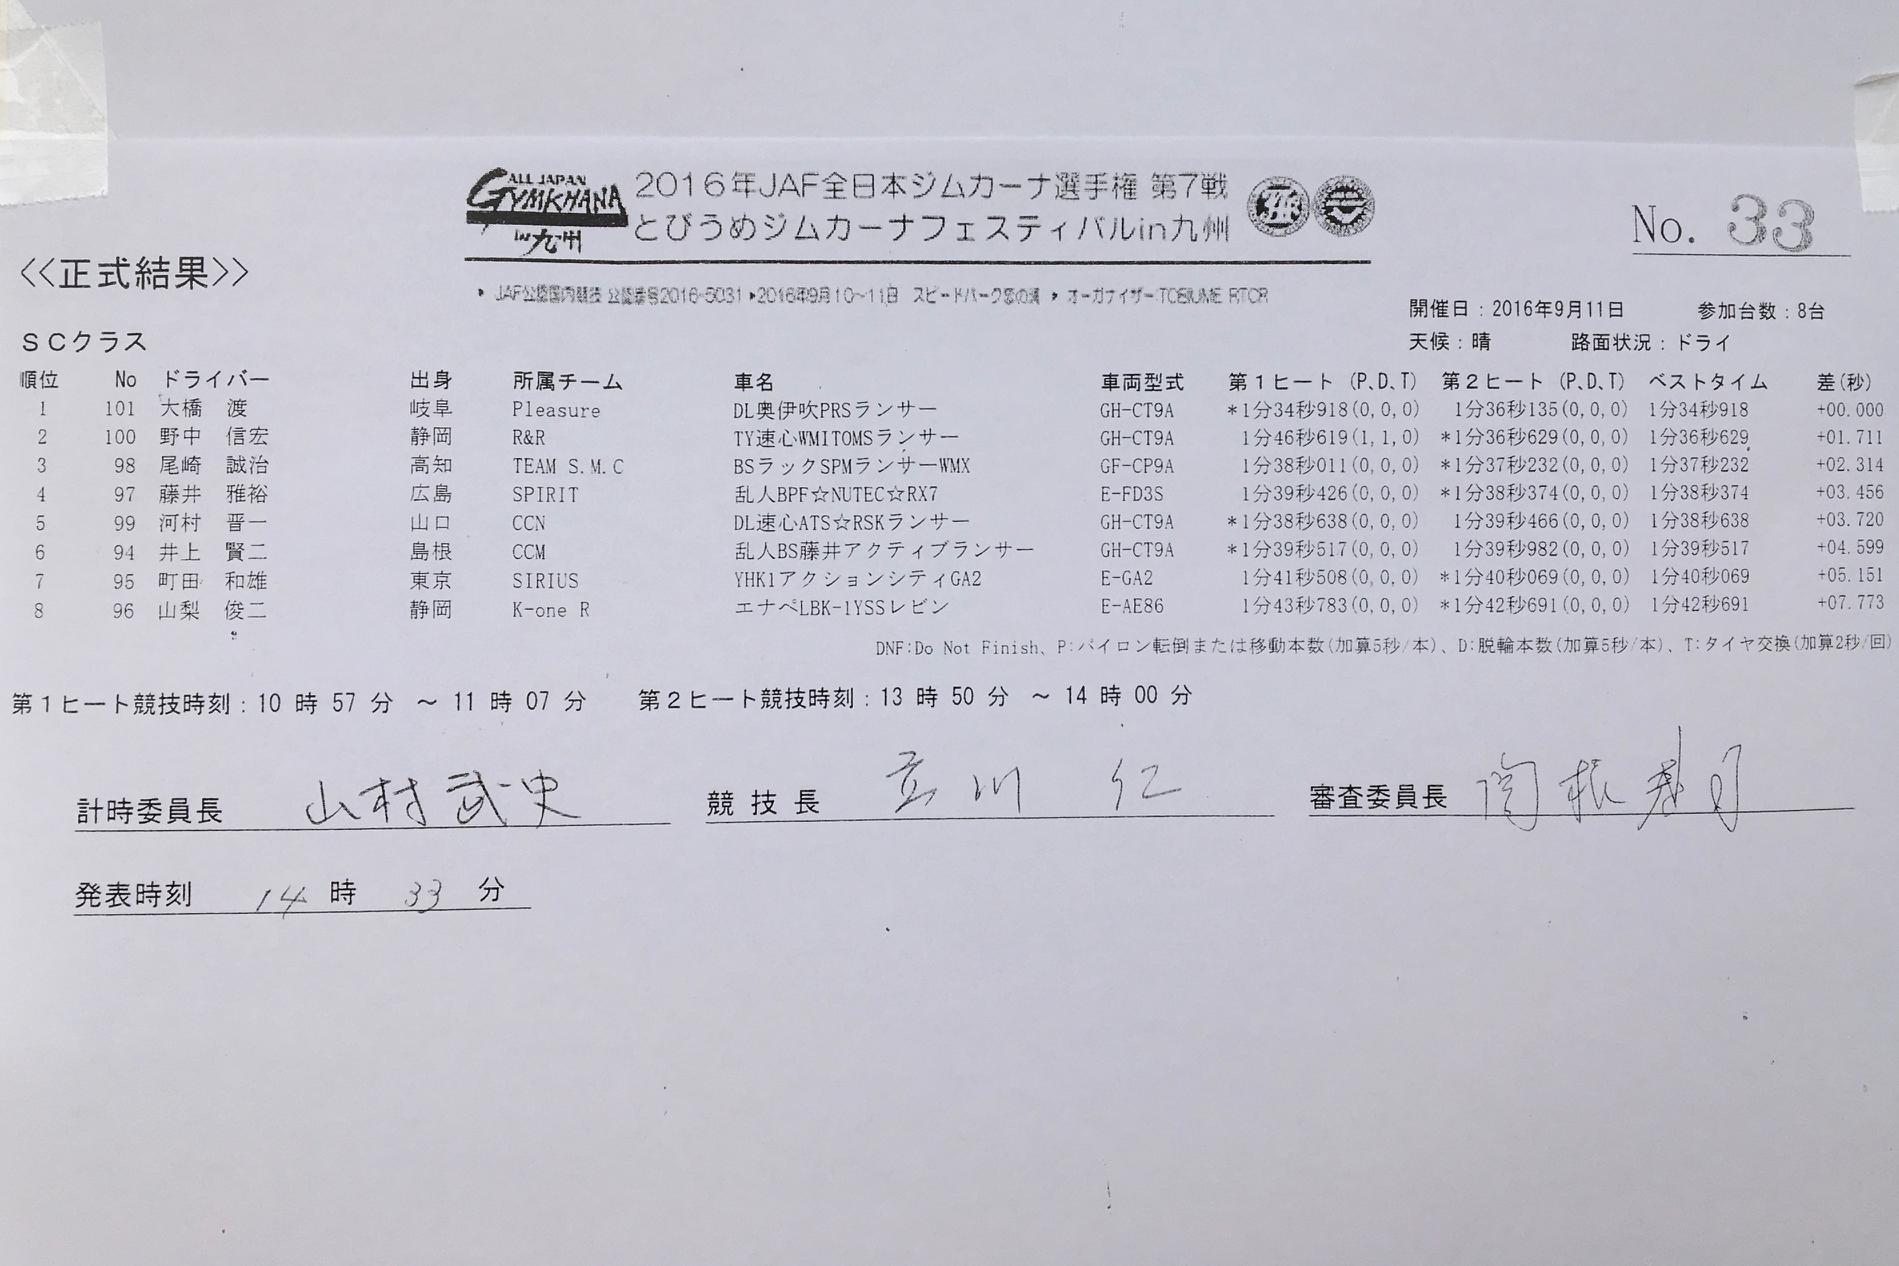 ALL JAPAN
GYMKHANA
in 九州
2016年JAF全日本ジムカーナ選手権 第7戦
とびうめジムカーナフェスティバルin九州
No. 33
<<正式結果>>
▶ JAF公認国内競技 公認番号2016-5031 ▶2016年9月10~11日 スピードパーク恋の浦 ▶ オーガナイザー:TOBIUME RTCR
開催日:2016年9月11日 参加台数:8台
SCクラス
天候:晴 路面状況:ドライ
順位 No ドライバー 出身 所属チーム 車名 車両型式 第1ヒート (P,D,T) 第2ヒート (P,D,T) ベストタイム 差(秒)
1 101 大橋 渡 岐阜 Pleasure DL奥伊吹PRSランサー GH-CT9A *1分34秒918(0,0,0) 1分36秒135(0,0,0) 1分34秒918 +00.000
2 100 野中 信宏 静岡 R&R TY速心WMITOMSランサー GH-CT9A 1分46秒619(1,1,0) *1分36秒629(0,0,0) 1分36秒629 +01.711
3 98 尾崎 誠治 高知 TEAM S.M.C BSラックSPMランサーWMX GF-CP9A 1分38秒011(0,0,0) *1分37秒232(0,0,0) 1分37秒232 +02.314
4 97 藤井 雅裕 広島 SPIRIT 乱人BPF☆NUTEC☆RX7 E-FD3S 1分39秒426(0,0,0) *1分38秒374(0,0,0) 1分38秒374 +03.456
5 99 河村 晋一 山口 CCN DL速心ATS☆RSKランサー GH-CT9A *1分38秒638(0,0,0) 1分39秒466(0,0,0) 1分38秒638 +03.720
6 94 井上 賢二 島根 CCM 乱人BS藤井アクティブランサー GH-CT9A *1分39秒517(0,0,0) 1分39秒982(0,0,0) 1分39秒517 +04.599
7 95 町田 和雄 東京 SIRIUS YHK1アクションシティGA2 E-GA2 1分41秒508(0,0,0) *1分40秒069(0,0,0) 1分40秒069 +05.151
8 96 山梨 俊二 静岡 K-one R エナペLBK-1YSSレビン E-AE86 1分43秒783(0,0,0) *1分42秒691(0,0,0) 1分42秒691 +07.773
DNF:Do Not Finish、P:パイロン転倒または移動本数(加算5秒/本)、D:脱輪本数(加算5秒/本)、T:タイヤ交換(加算2秒/回)
第1ヒート競技時刻:10 時 57 分 ~ 11 時 07 分 第2ヒート競技時刻:13 時 50 分 ~ 14 時 00 分
計時委員長 山村 武史 競技長 立川 仁 審査委員長
発表時刻 14 時 33 分